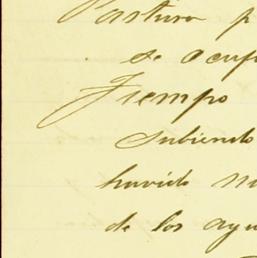 Pastura p
se ocup
Tiempo
subiendo
havido m
de los agu